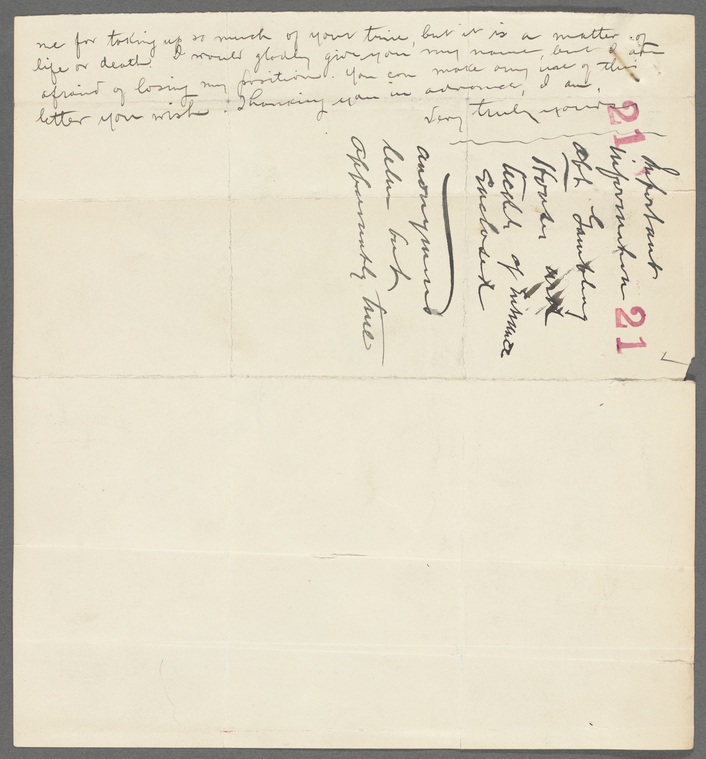 me for taking up so much of your time, but it is a matter of
life or death. I would gladly give you my name, but I am
afraid of losing my position. You can make any use of this
letter you wish. Thanking you in advance, I am,
Very truly yours
21
Important
information
abt. Gambling
Houses
ticket of entrance
Enclosed
anonymous
letter but
apparently true
21